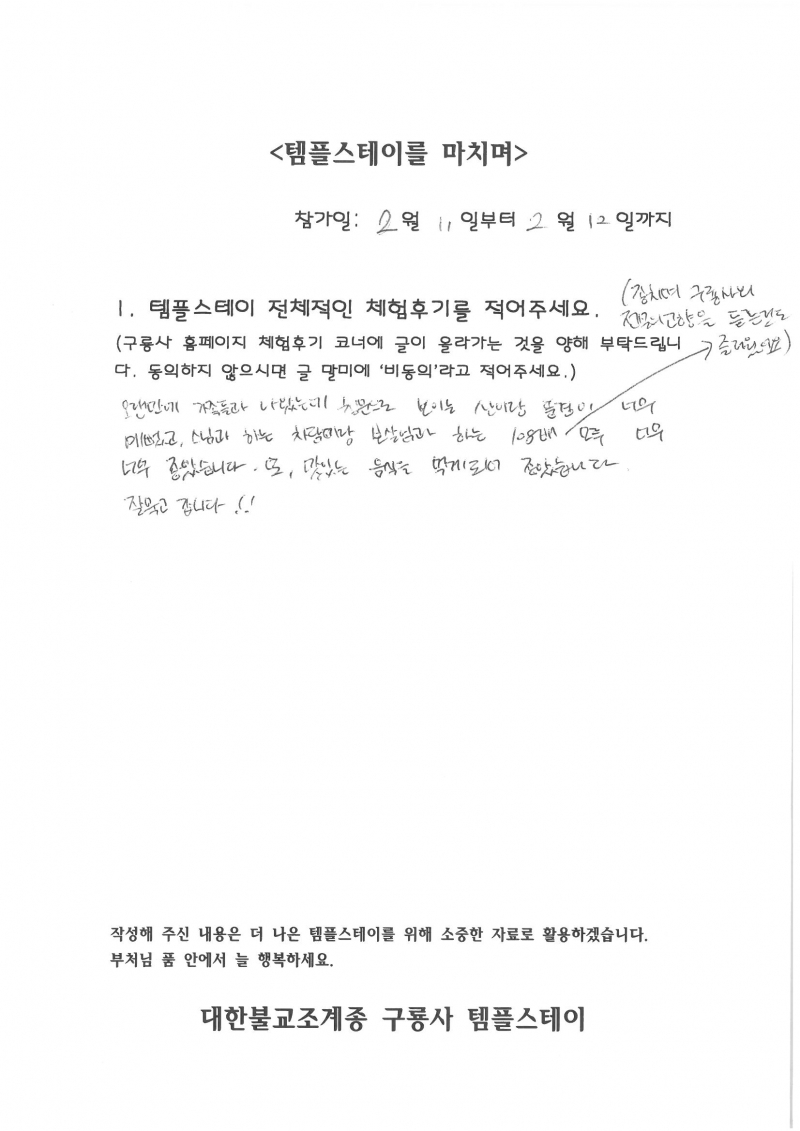 <템플스테이를 마치며>
참가일: 2월 11일부터 2월 12일까지
1. 템플스테이 전체적인 체험후기를 적어주세요.
(구룡사 홈페이지 체험후기 코너에 글이 올라가는 것을 양해 부탁드립니
다. 동의하지 않으시면 글 말미에 '비동의'라고 적어주세요.)
(장치며 구룡사의
전설의고향을 듣는것도
즐거웠어요)
오랜만에 가족들과 나왔는데 창문으로 보이는 산이랑 풀들이 너무
예뻤고, 스님과 하는 차담이랑 보살님과 하는 108배 모두 너무
너무 좋았습니다. 또, 맛있는 음식을 먹게되어 좋았습니다.
잘먹고 갑니다!!
작성해 주신 내용은 더 나은 템플스테이를 위해 소중한 자료로 활용하겠습니다.
부처님 품 안에서 늘 행복하세요.
대한불교조계종 구룡사 템플스테이